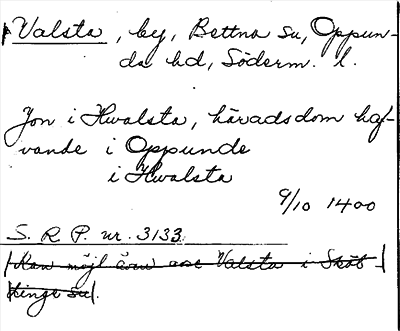 Valsta, by, Bettna su, Oppun-
da hd, Söderm. l.
Jon i Hwalsta, häradsdom haf-
vande i Oppunde
i Hwalsta
9/10 1400
S. R. P. nr. 3133
Kan möjl även avse Valsta i Sköl-
dinge su.